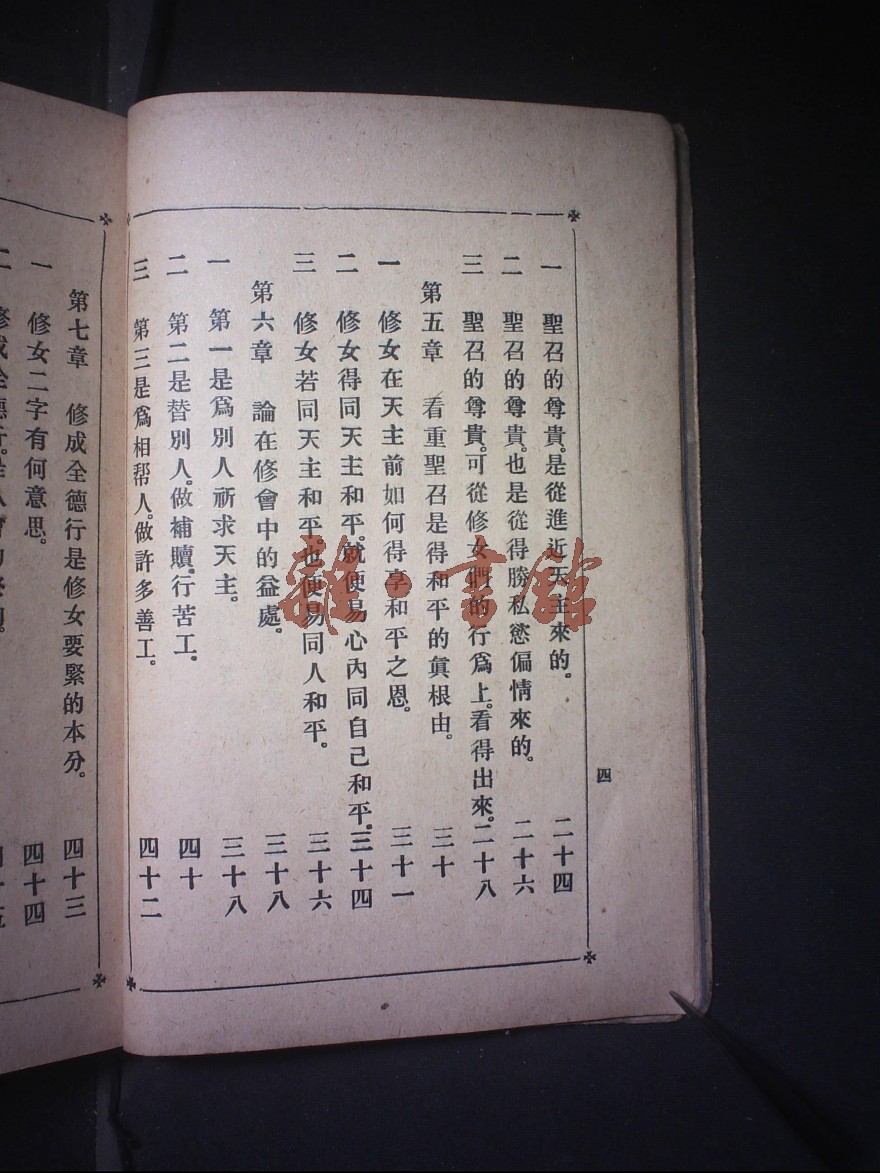 四
一 聖召的尊貴。是從進近天主來的。 二十四
二 聖召的尊貴。也是從得勝私慾偏情來的。 二十六
三 聖召的尊貴。可從修女們的行爲上。看得出來。 二十八
第五章 看重聖召是得和平的眞根由。 三十
一 修女在天主前如何得享和平之恩。 三十一
二 修女得同天主和平。就便易心內同自己和平。 三十四
三 修女若同天主和平。也便易同人和平。 三十六
第六章 論在修會中的益處。 三十八
一 第一是爲別人祈求天主。 三十八
二 第二是替別人。做補贖。行苦工。 四十
三 第三是爲相帮人。做許多善工。 四十二
第七章 修成全德行是修女要緊的本分。 四十三
一 修女二字有何意思。 四十四
二 修成全德行。是
雜·書館